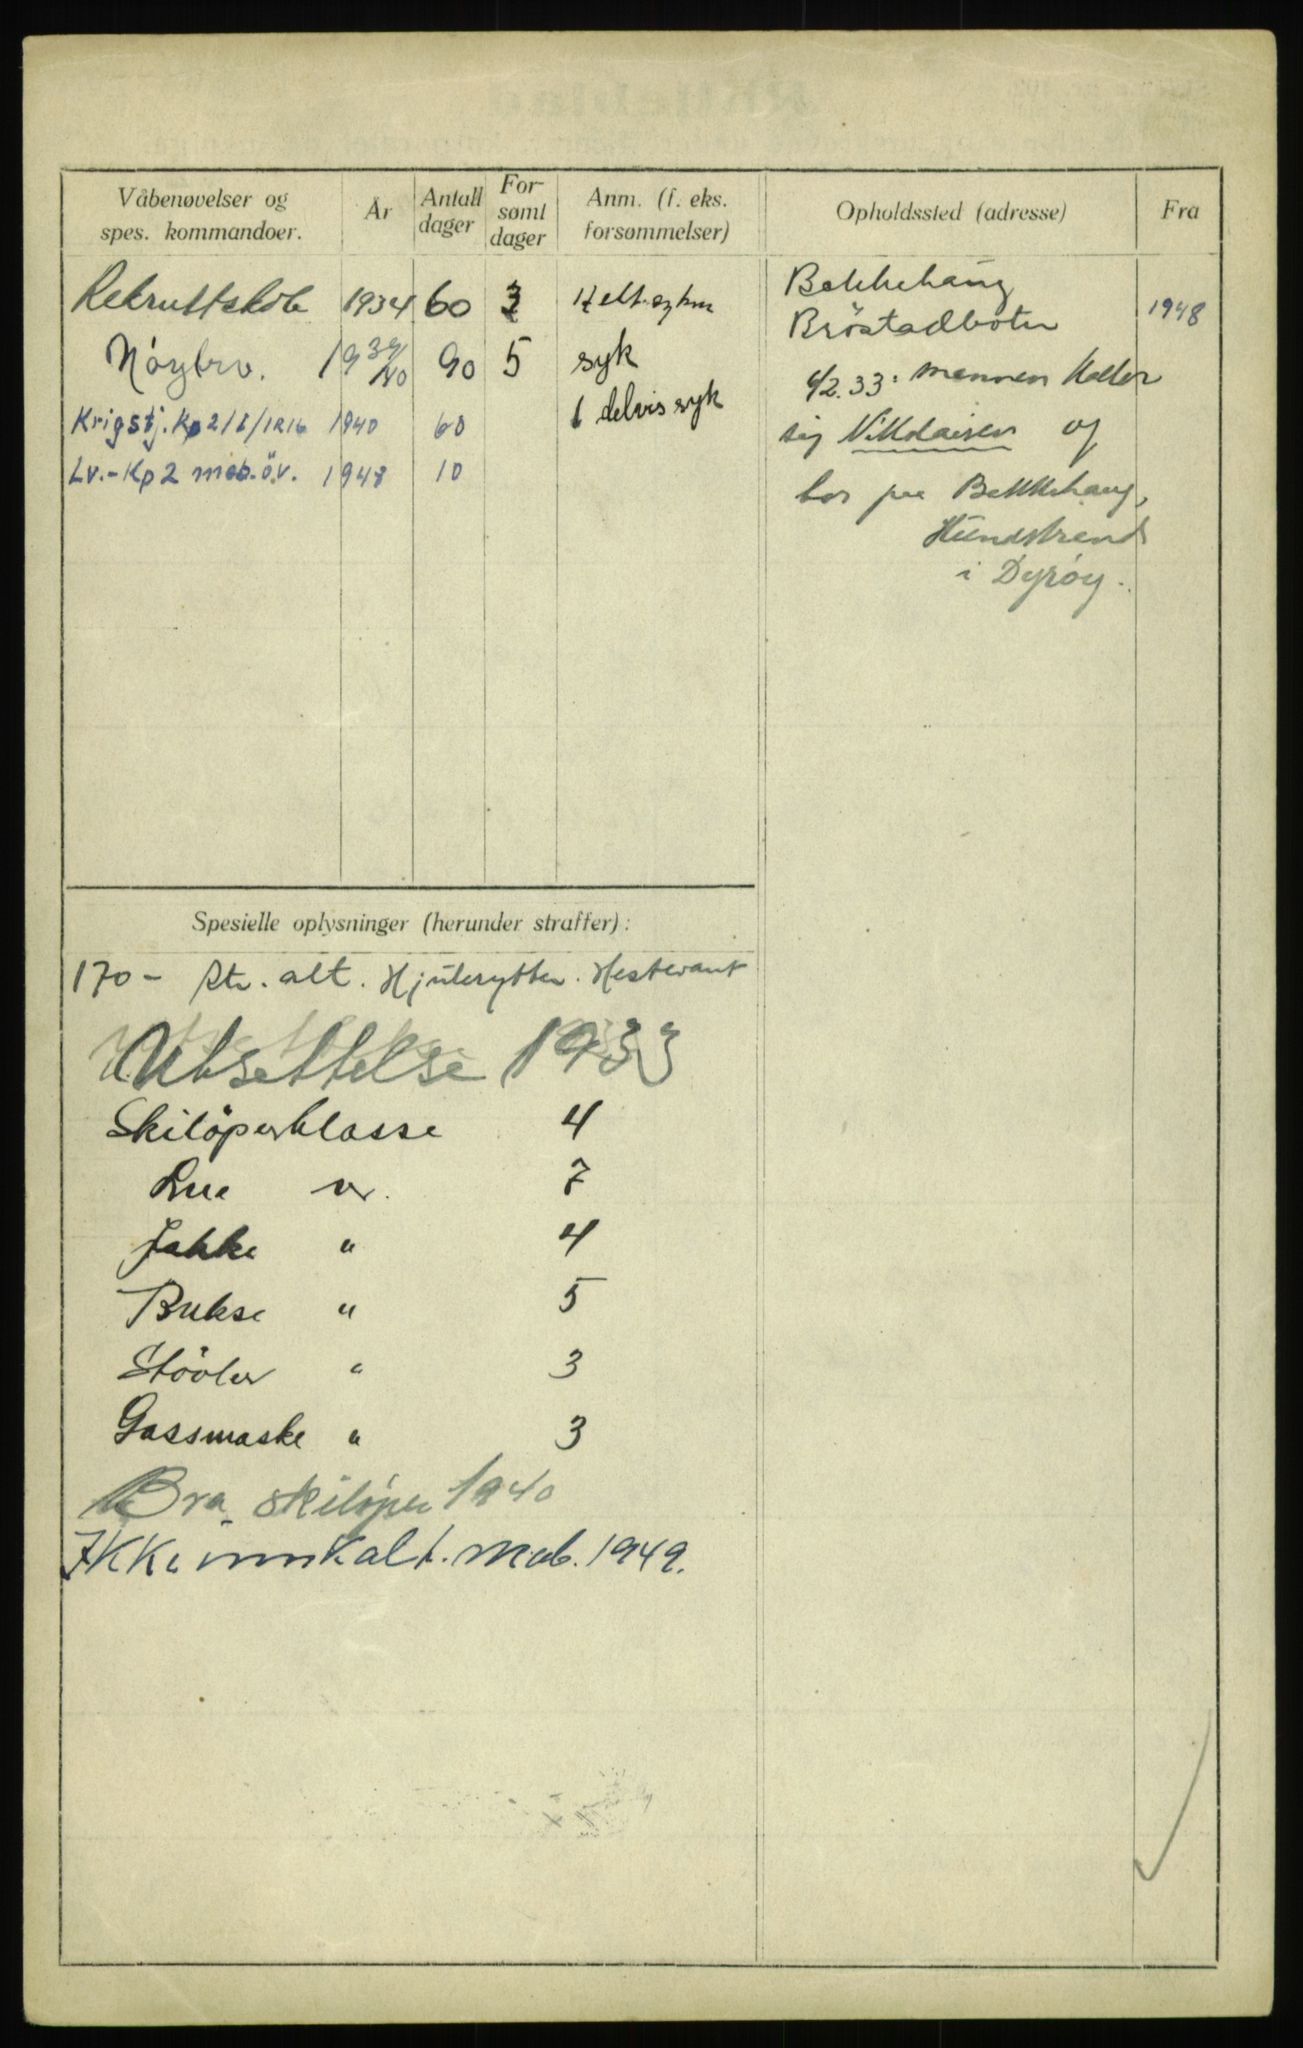 Våbenøvelser og spes. kommandoer. | År | Antall dager | For- sømt dager | Anm. (f. eks. forsømmelser) | Opholdssted (adresse) | Fra
Rekruttskole 1934 60 3
Nöytrv. 1939/40 90 5 syk
1 delvis syk
Krigstj. Kp 2/I/IR16 1940 60
Lv.-Kp 2 mob.öv. 1948 10
Bekkehaug
Bröstadbotn 1948
4/2.33: mannen kaller
sig Nikolaisen og
bor paa Bekkehaug,
Hundstrand
i Dyröy.
Spesielle oplysninger (herunder straffer):
170 - alt. Hjulrytter. Hestevant
Utsettelse 1933
Skilöperklasse 4
Lue nr. 7
Jakke " 4
Bukse " 5
Stövler " 3
Gassmaske " 3
Bra skilöper 1940
Ikke innkalt. mob. 1949.